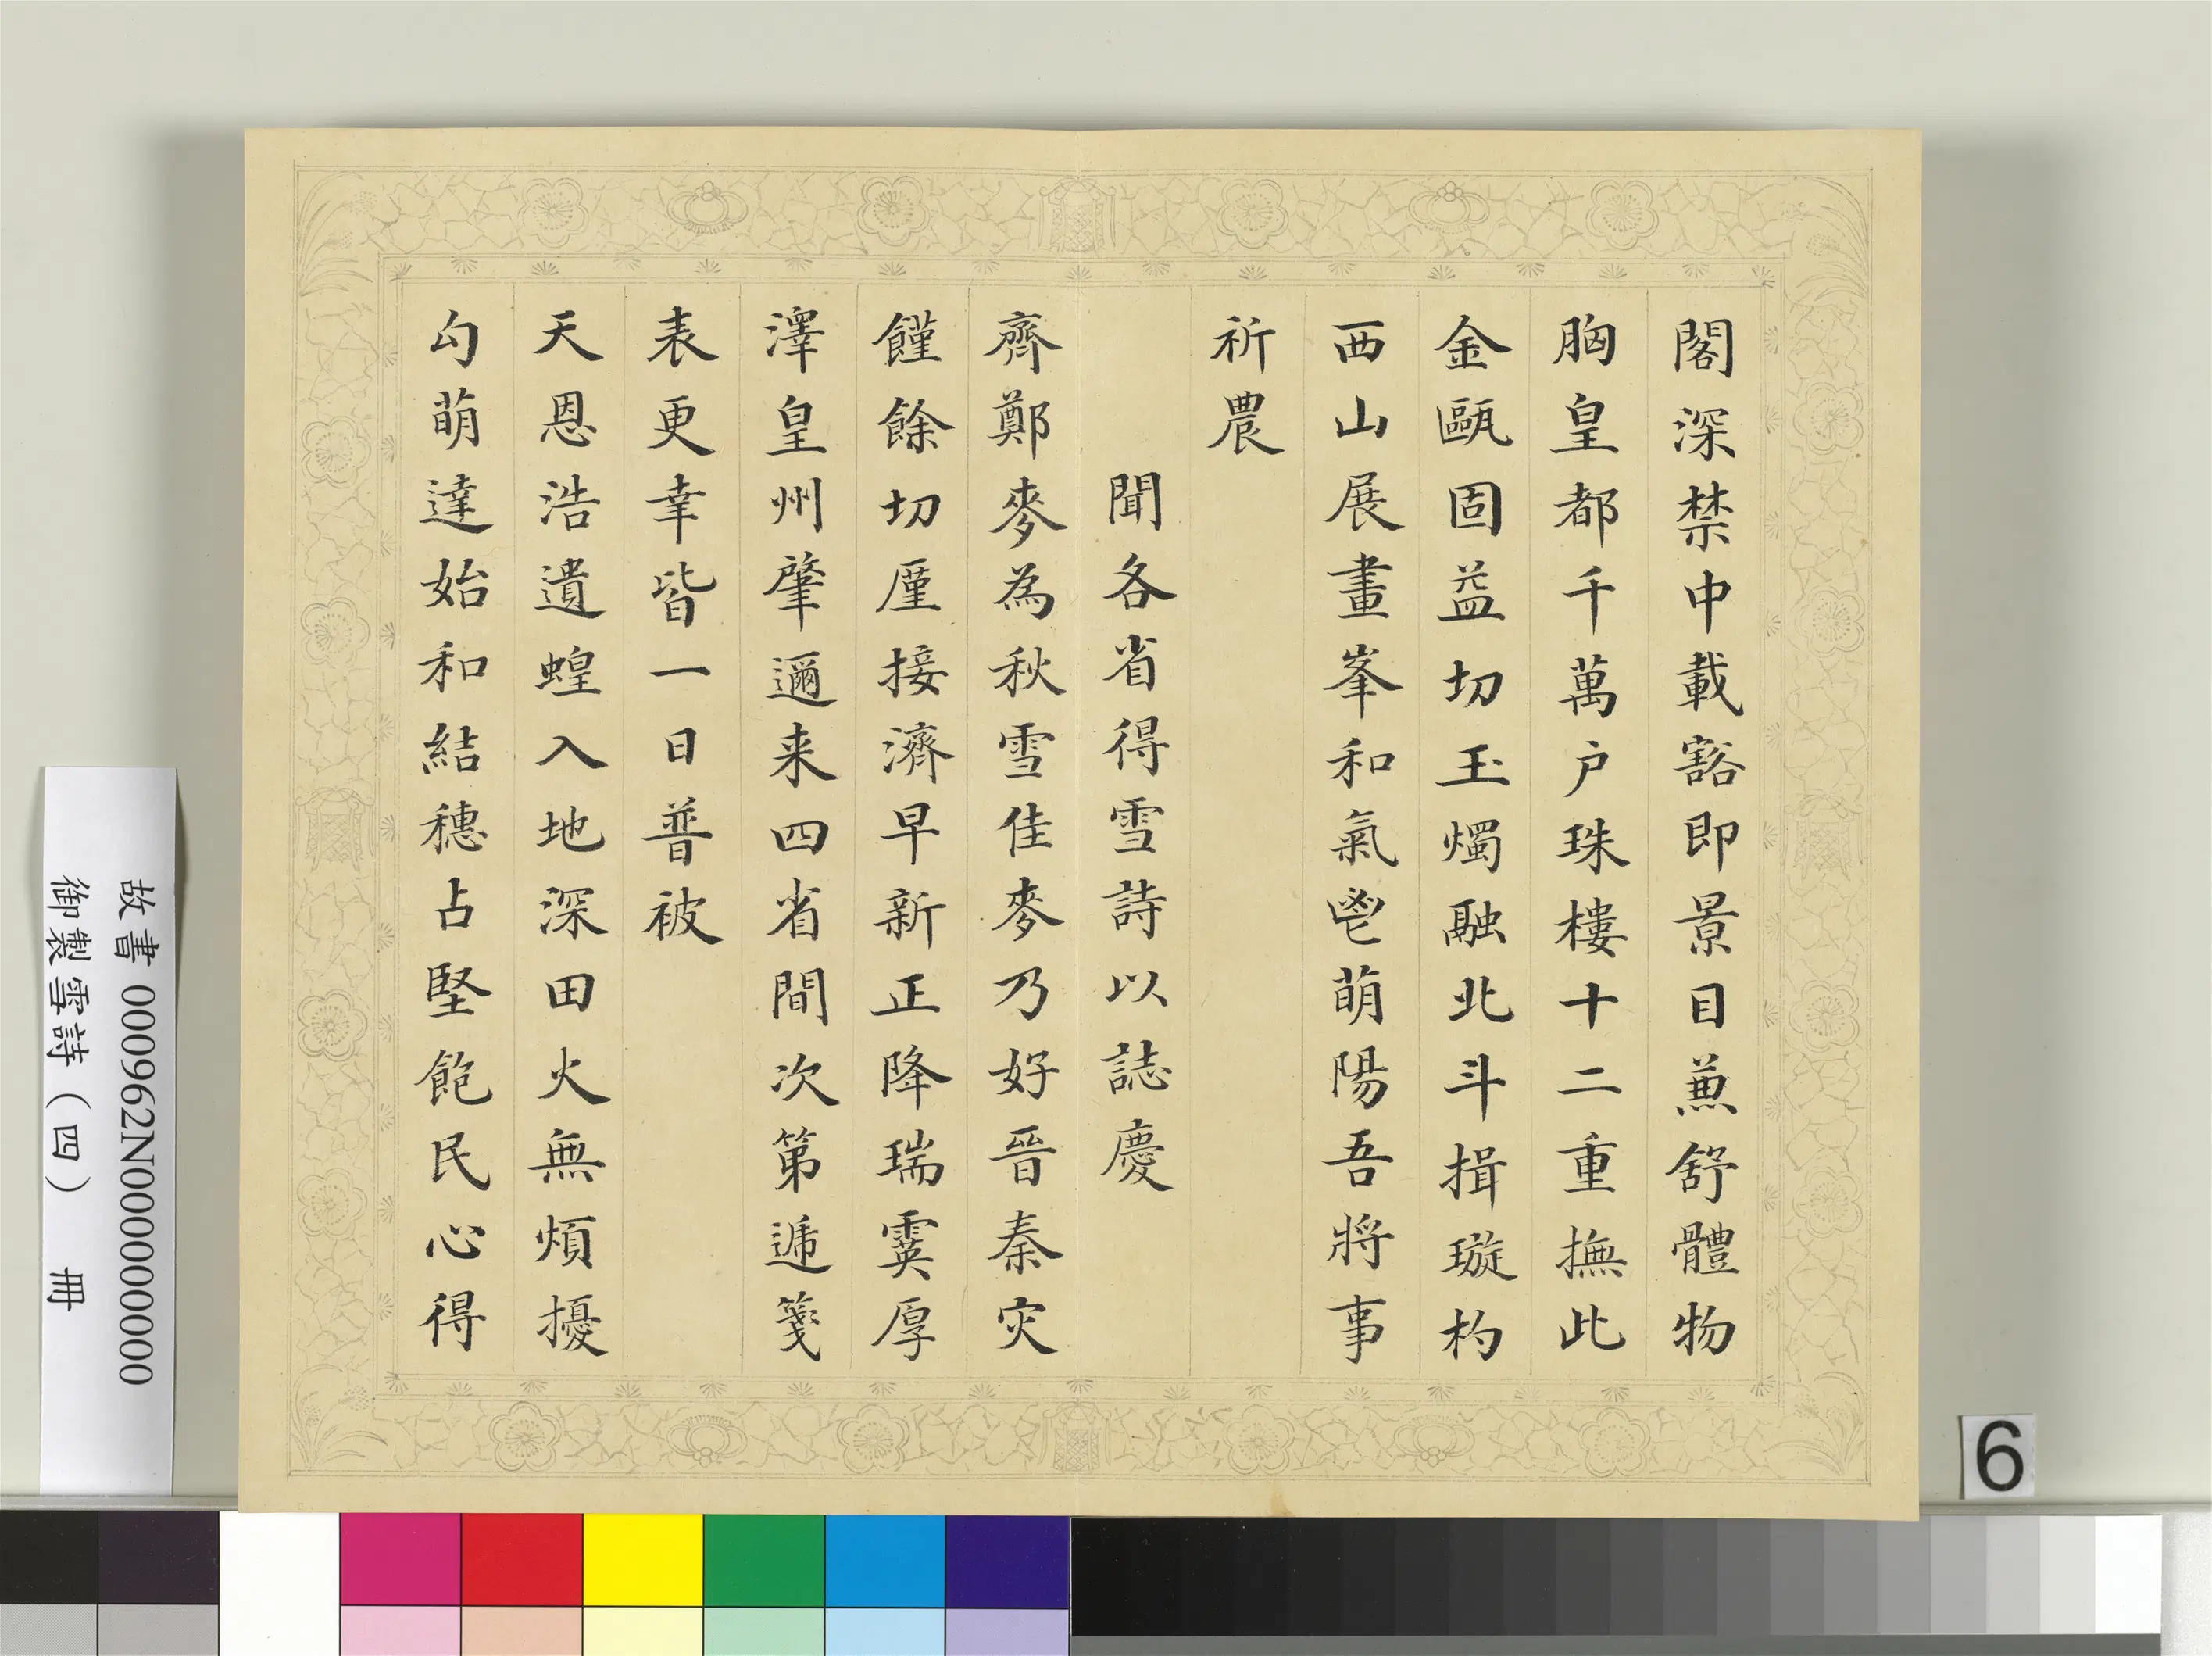 閣深禁中載豁即景目兼舒體物
胸皇都千萬户珠樓十二重撫此
金甌固益切玉燭融北斗揖璇杓
西山展畫峯和氣鬯萌陽吾將事
祈農
聞各省得雪詩以誌慶
齊鄭麥為秋雪佳麥乃好晉秦灾
饉餘切厪接濟早新正降瑞霙厚
澤皇州肇邇来四省間次第遞箋
表更幸皆一日普被
天恩浩遺蝗入地深田火無煩擾
勾萌達始和結穗占堅飽民心得
故書 000962N000000000
御製雪詩（四） 冊
6